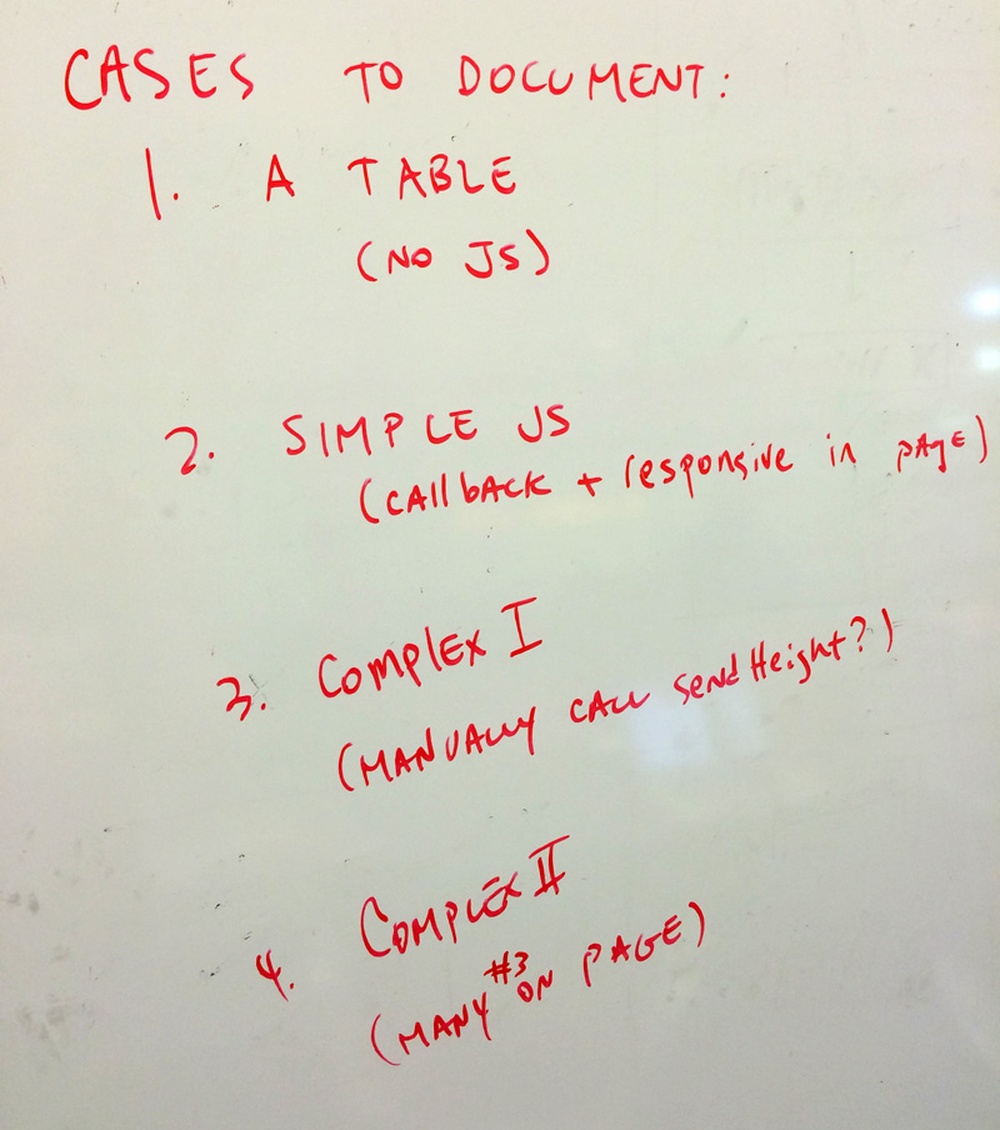 CASES TO DOCUMENT:
1. A TABLE
(NO JS)
2. SIMPLE JS
(CAllbACK + responsive in pAgE)
3. ComplEx I
(MANUALLY CALL sendHeight?)
4. COMPLEX II
(MANY #3 ON PAGE)